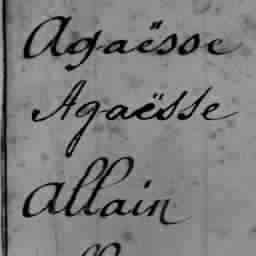 Agaësse
Agaësse
Allain